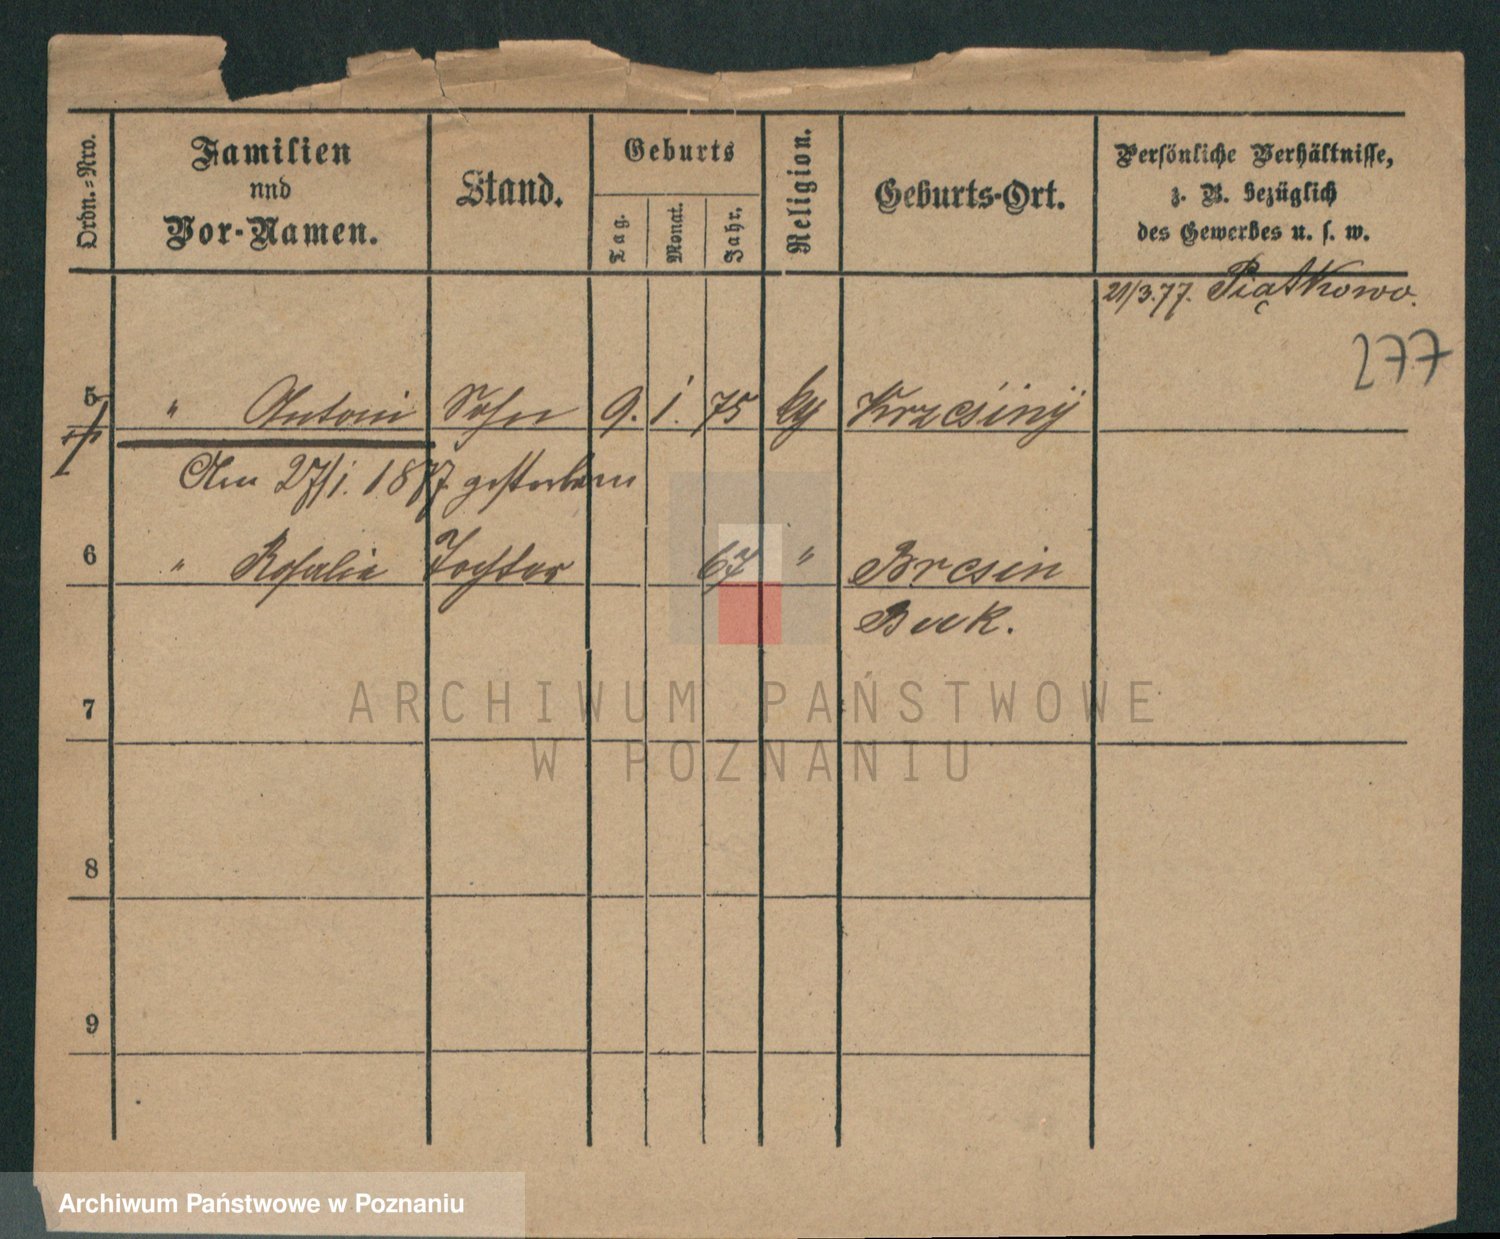 Ordn.-Nro.
Familien
und
Vor-Namen.
Stand.
Geburts
Tag.
Monat.
Jahr.
Religion.
Geburts-Ort.
Persönliche Verhältnisse,
z. B. bezüglich
des Gewerbes u. s. w.
21/3.77. Piątkowo.
277
5 " Antoni Sohn 9. 1. 75 Krzcsinÿ
Am 27/1. 1877. gestorben
6 " Rosalie Tochter 67 " Brcsin
Buk.
7
8
9
ARCHIWUM PAŃSTWOWE
W POZNANIU
Archiwum Państwowe w Poznaniu